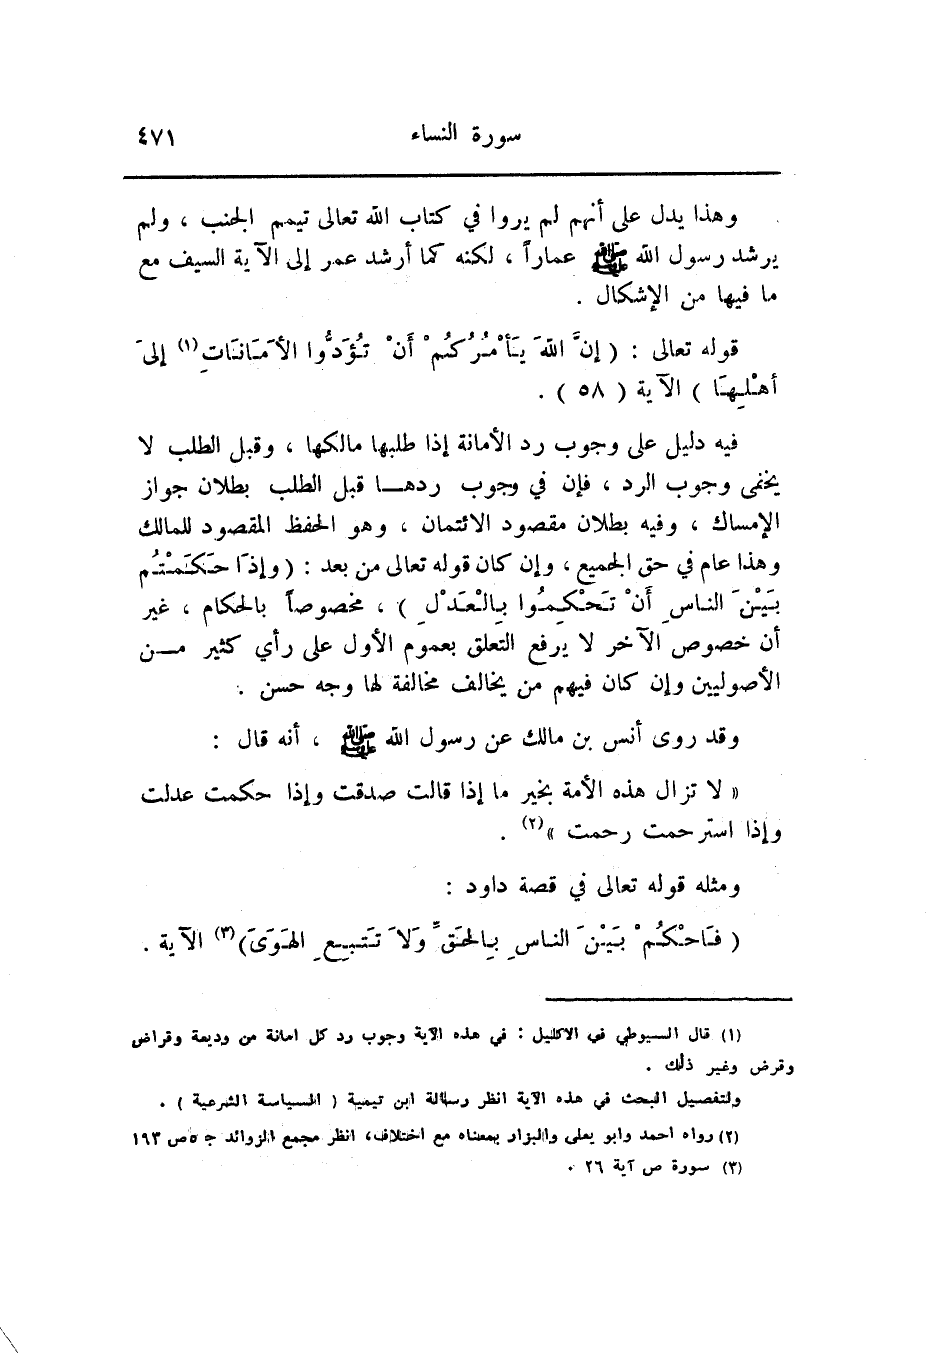 سورة النساء ٤٧١
وهذا يدل على أنهم لم يروا في كتاب الله تعالى تيمم الجنب ، ولم
يرشد رسول الله ﷺ عماراً ، لكنه كما أرشد عمر إلى الآية السيف مع
ما فيها من الإشكال .
قوله تعالى : ( إنَّ اللهَ يَأْمُرُكُمْ أَنْ تُؤَدُّوا الأَمَانَاتِ(١) إلىَ
أهْلِهَا ) الآية ( ٥٨ ) .
فيه دليل على وجوب رد الأمانة إذا طلبها مالكها ، وقبل الطلب لا
يخفى وجوب الرد ، فإن في وجوب ردهــا قبل الطلب بطلان جواز
الإمساك ، وفيه بطلان مقصود الائتمان ، وهو الحفظ المقصود للمالك
وهذا عام في حق الجميع ، وإن كان قوله تعالى من بعد : ( وإذَا حَكَمْتُم
بَيْنَ الناسِ أَنْ تَحْكِمُوا بِالْعَدْلِ ) ، مخصوصاً بالحكام ، غير
أن خصوص الآخر لا يرفع التعلق بعموم الأول على رأي كثير مــن
الأصوليين وإن كان فيهم من يخالف مخالفة لها وجه حسن .
وقد روى أنس بن مالك عن رسول الله ﷺ ، أنه قال :
« لا تزال هذه الأمة بخير ما إذا قالت صدقت وإذا حكمت عدلت
وإذا استرحمت رحمت »(٢) .
ومثله قوله تعالى في قصة داود :
( فَاحْكُمْ بَيْنَ الناسِ بِالحَقِّ وَلاَ تَتَّبِعِ الهَوَىَ)(٣) الآية .
(١) قال السيوطي في الاكليل : في هذه الآية وجوب رد كل امانة من وديعة وقراض
وقرض وغير ذلك .
ولتفصيل البحث في هذه الآية انظر رسالة ابن تيمية ( السياسة الشرعية ) .
(٢) رواه احمد وابو يعلى والبزار بمعناه مع اختلاف، انظر مجمع الزوائد ج ٥ ص ١٩٣
(٣) سورة ص آية ٢٦ .